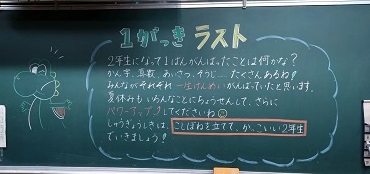 1がっき ラスト
2年生になって1ばんがんばったことは何かな？
かん字、算数、あいさつ、そうじ…たくさんあるね！
みんながそれぞれ一生けんめいがんばっていたと思います。
夏休みもいろんなことにちょうせんして、さらに
パワーアップしてくださいね
しゅうぎょうしきは、こしぼねを立てて、かっこいい2年生
でいきましょう！